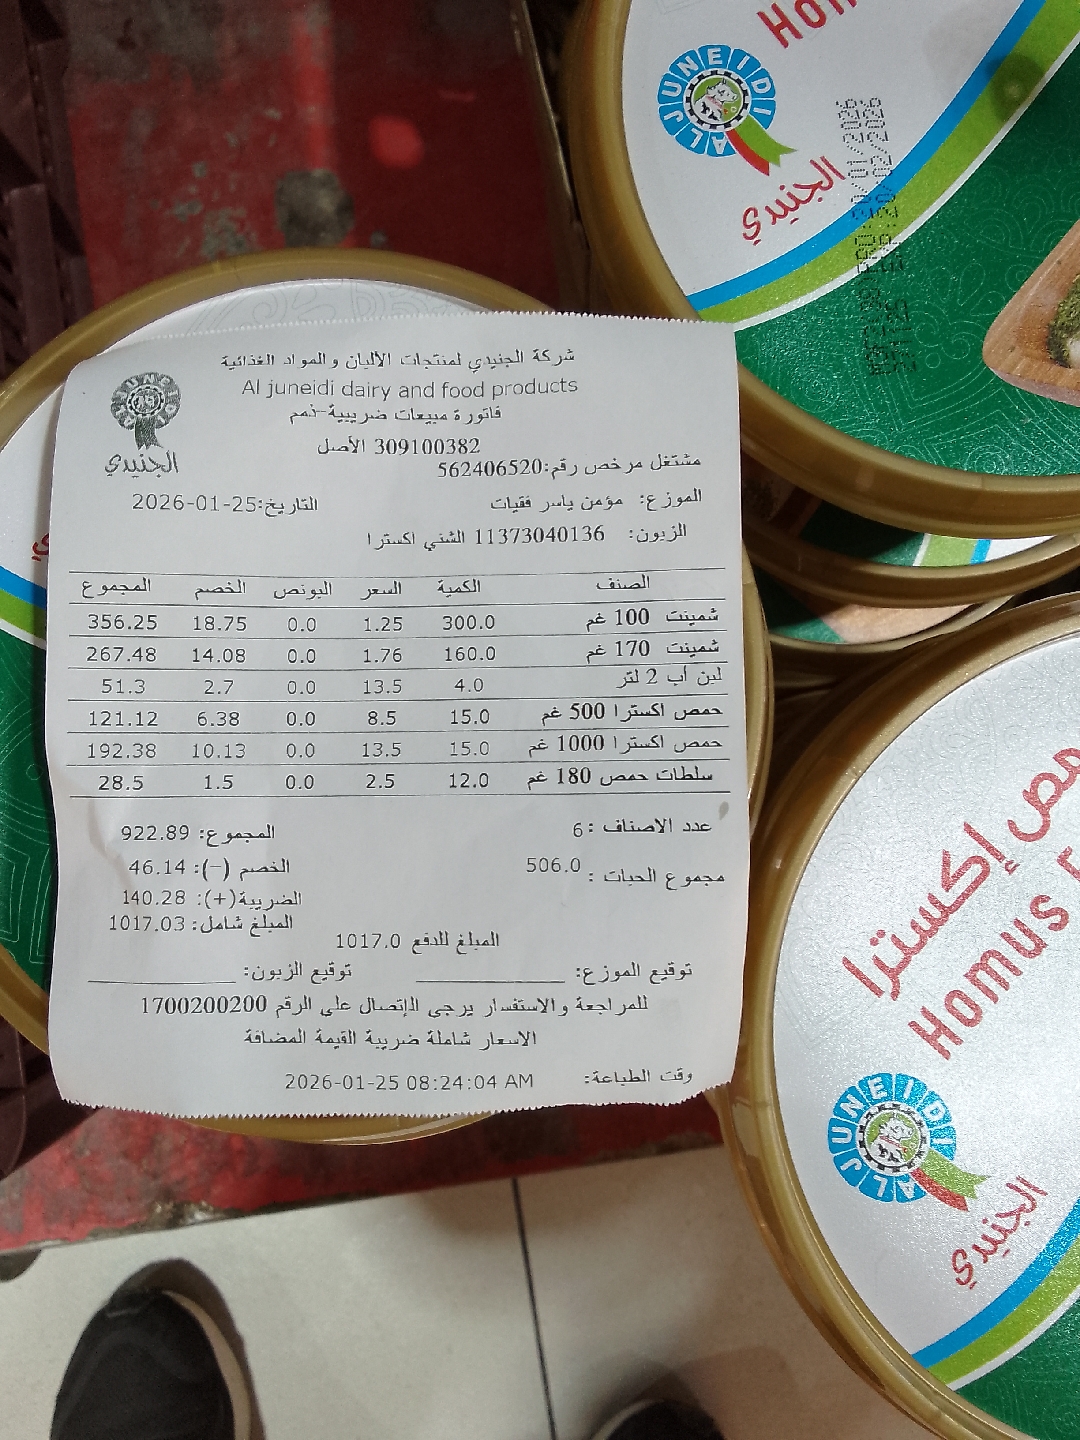 شركة الجنيدي لمنتجات الالبان والمواد الغذائية
Al juneidi dairy and food products
فاتورة مبيعات ضريبية-ذمم
309100382 الأصل
مشتغل مرخص رقم:562406520
الموزع: مؤمن ياسر فقيات التاريخ:2026-01-25
الزبون: 11373040136 الشني اكسترا
AL JUNEIDI
الجنيدي
الصنف الكمية السعر البونص الخصم المجموع
شمينت 100 غم 300.0 1.25 0.0 18.75 356.25
شمينت 170 غم 160.0 1.76 0.0 14.08 267.48
لبن اب 2 لتر 4.0 13.5 0.0 2.7 51.3
حمص اكسترا 500 غم 15.0 8.5 0.0 6.38 121.12
حمص اكسترا 1000 غم 15.0 13.5 0.0 10.13 192.38
سلطات حمص 180 غم 12.0 2.5 0.0 1.5 28.5
عدد الاصناف :6 المجموع: 922.89
مجموع الحبات : 506.0 الخصم (-): 46.14
الضريبة(+): 140.28
المبلغ شامل: 1017.03
المبلغ للدفع 1017.0
توقيع الموزع: توقيع الزبون:
للمراجعة والاستفسار يرجى الإتصال على الرقم 1700200200
الاسعار شاملة ضريبة القيمة المضافة
وقت الطباعة: 2026-01-25 08:24:04 AM
AL JUNEIDI
الجنيدي
إكسترا
Homus
AL JUNEIDI
الجنيدي